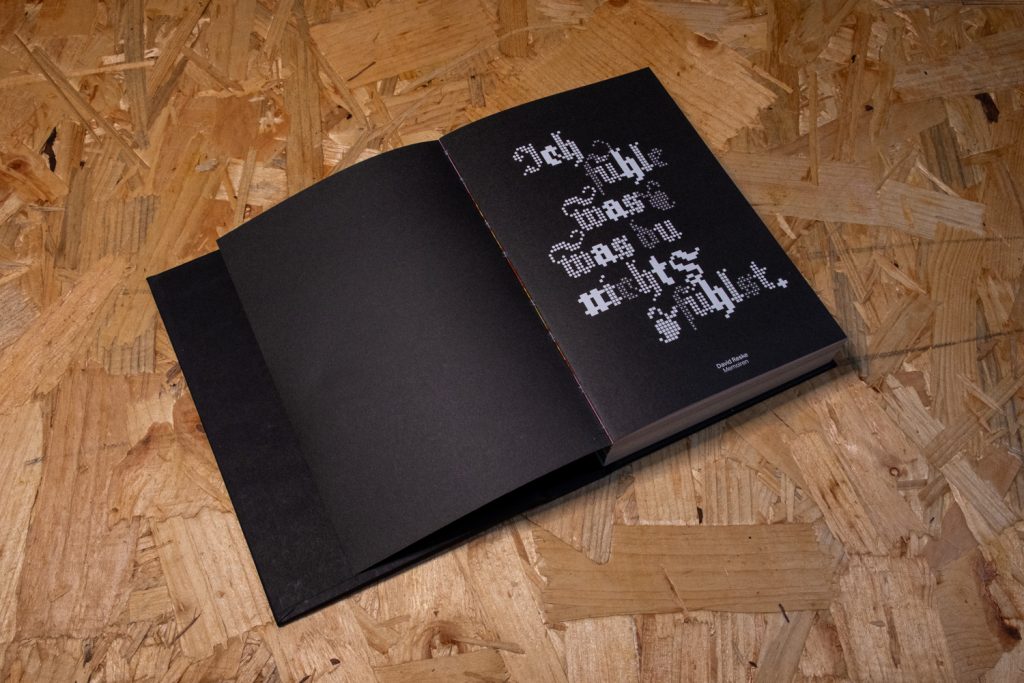 Ich
fühle
was
was du
nichts
fühlst.
David Reske
Memoiren